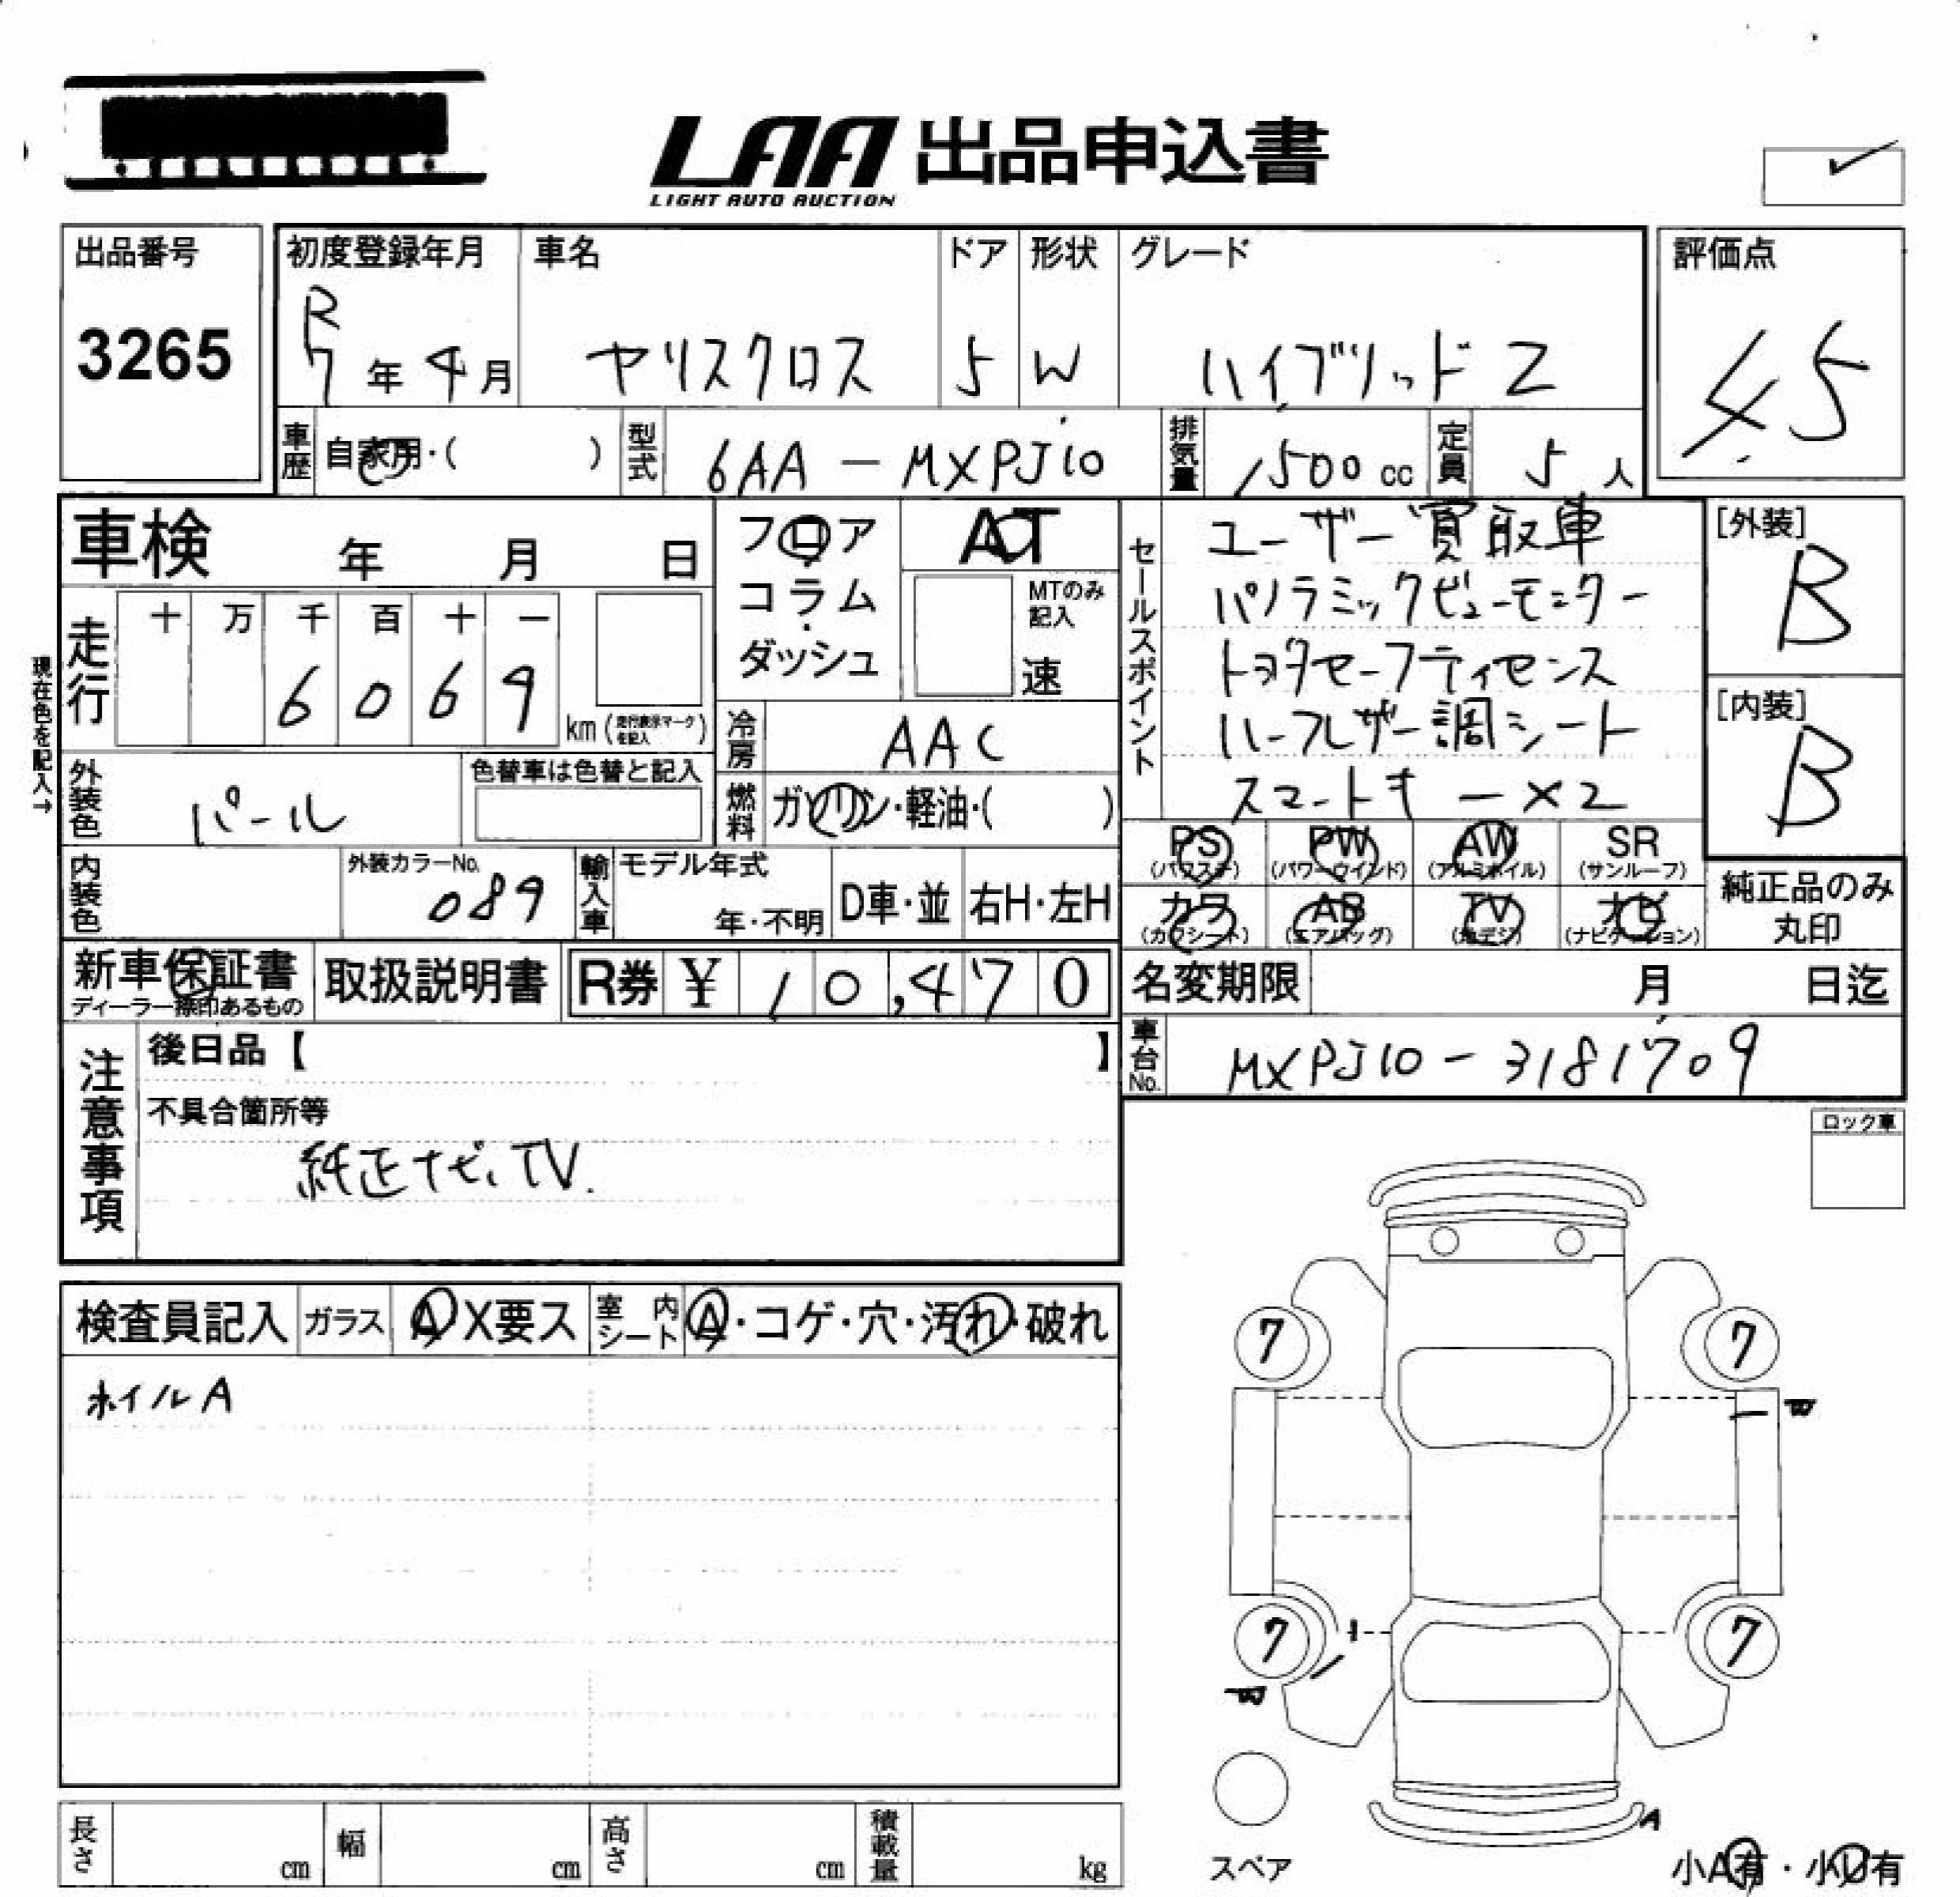 LAA 出品申込書
LIGHT AUTO AUCTION
出品番号
3265
初度登録年月
R
7年4月
車名
ヤリスクロス
ドア
5
形状
W
グレード
ハイブリッドZ
評価点
4.5
車歴
自家用・( )
型式
6AA-MXPJ10
排気量
1500cc
定員
5人
車検 年 月 日
フロア
コラム
ダッシュ
AT
MTのみ
記入
速
セールスポイント
ユーザー買取車
パノラミックビューモニター
トヨタセーフティセンス
ハーフレザー調シート
スマートキー×2
[外装]
B
[内装]
B
現在色を記入→
走行
十 万 千 百 十 一
6 0 6 9
km(走行表示マークを記入)
冷房
AAC
外装色
パール
色替車は色替と記入
燃料
ガソリン・軽油・( )
PS
(パワステ)
PW
(パワーウインド)
AW
(アルミホイル)
SR
(サンルーフ)
カワ
(カワシート)
AB
(エアバッグ)
TV
(地デジ)
ナビ
(ナビゲーション)
純正品のみ
丸印
内装色
外装カラーNo.
089
輸入車
モデル年式
年・不明
D車・並
右H・左H
新車保証書
ディーラー捺印あるもの
取扱説明書
R券 ¥ 10,470
名変期限 月 日迄
車台No.
MXPJ10-3181709
注意事項
後日品【 】
不具合箇所等
純正ナビ、TV.
ロック車
検査員記入
ガラス
A X要ス
室内シート
A・コゲ・穴・汚れ・破れ
ホイルA
7
7
7
7
A
スペア
小A有・小U有
長さ cm
幅 cm
高さ cm
積載量 kg